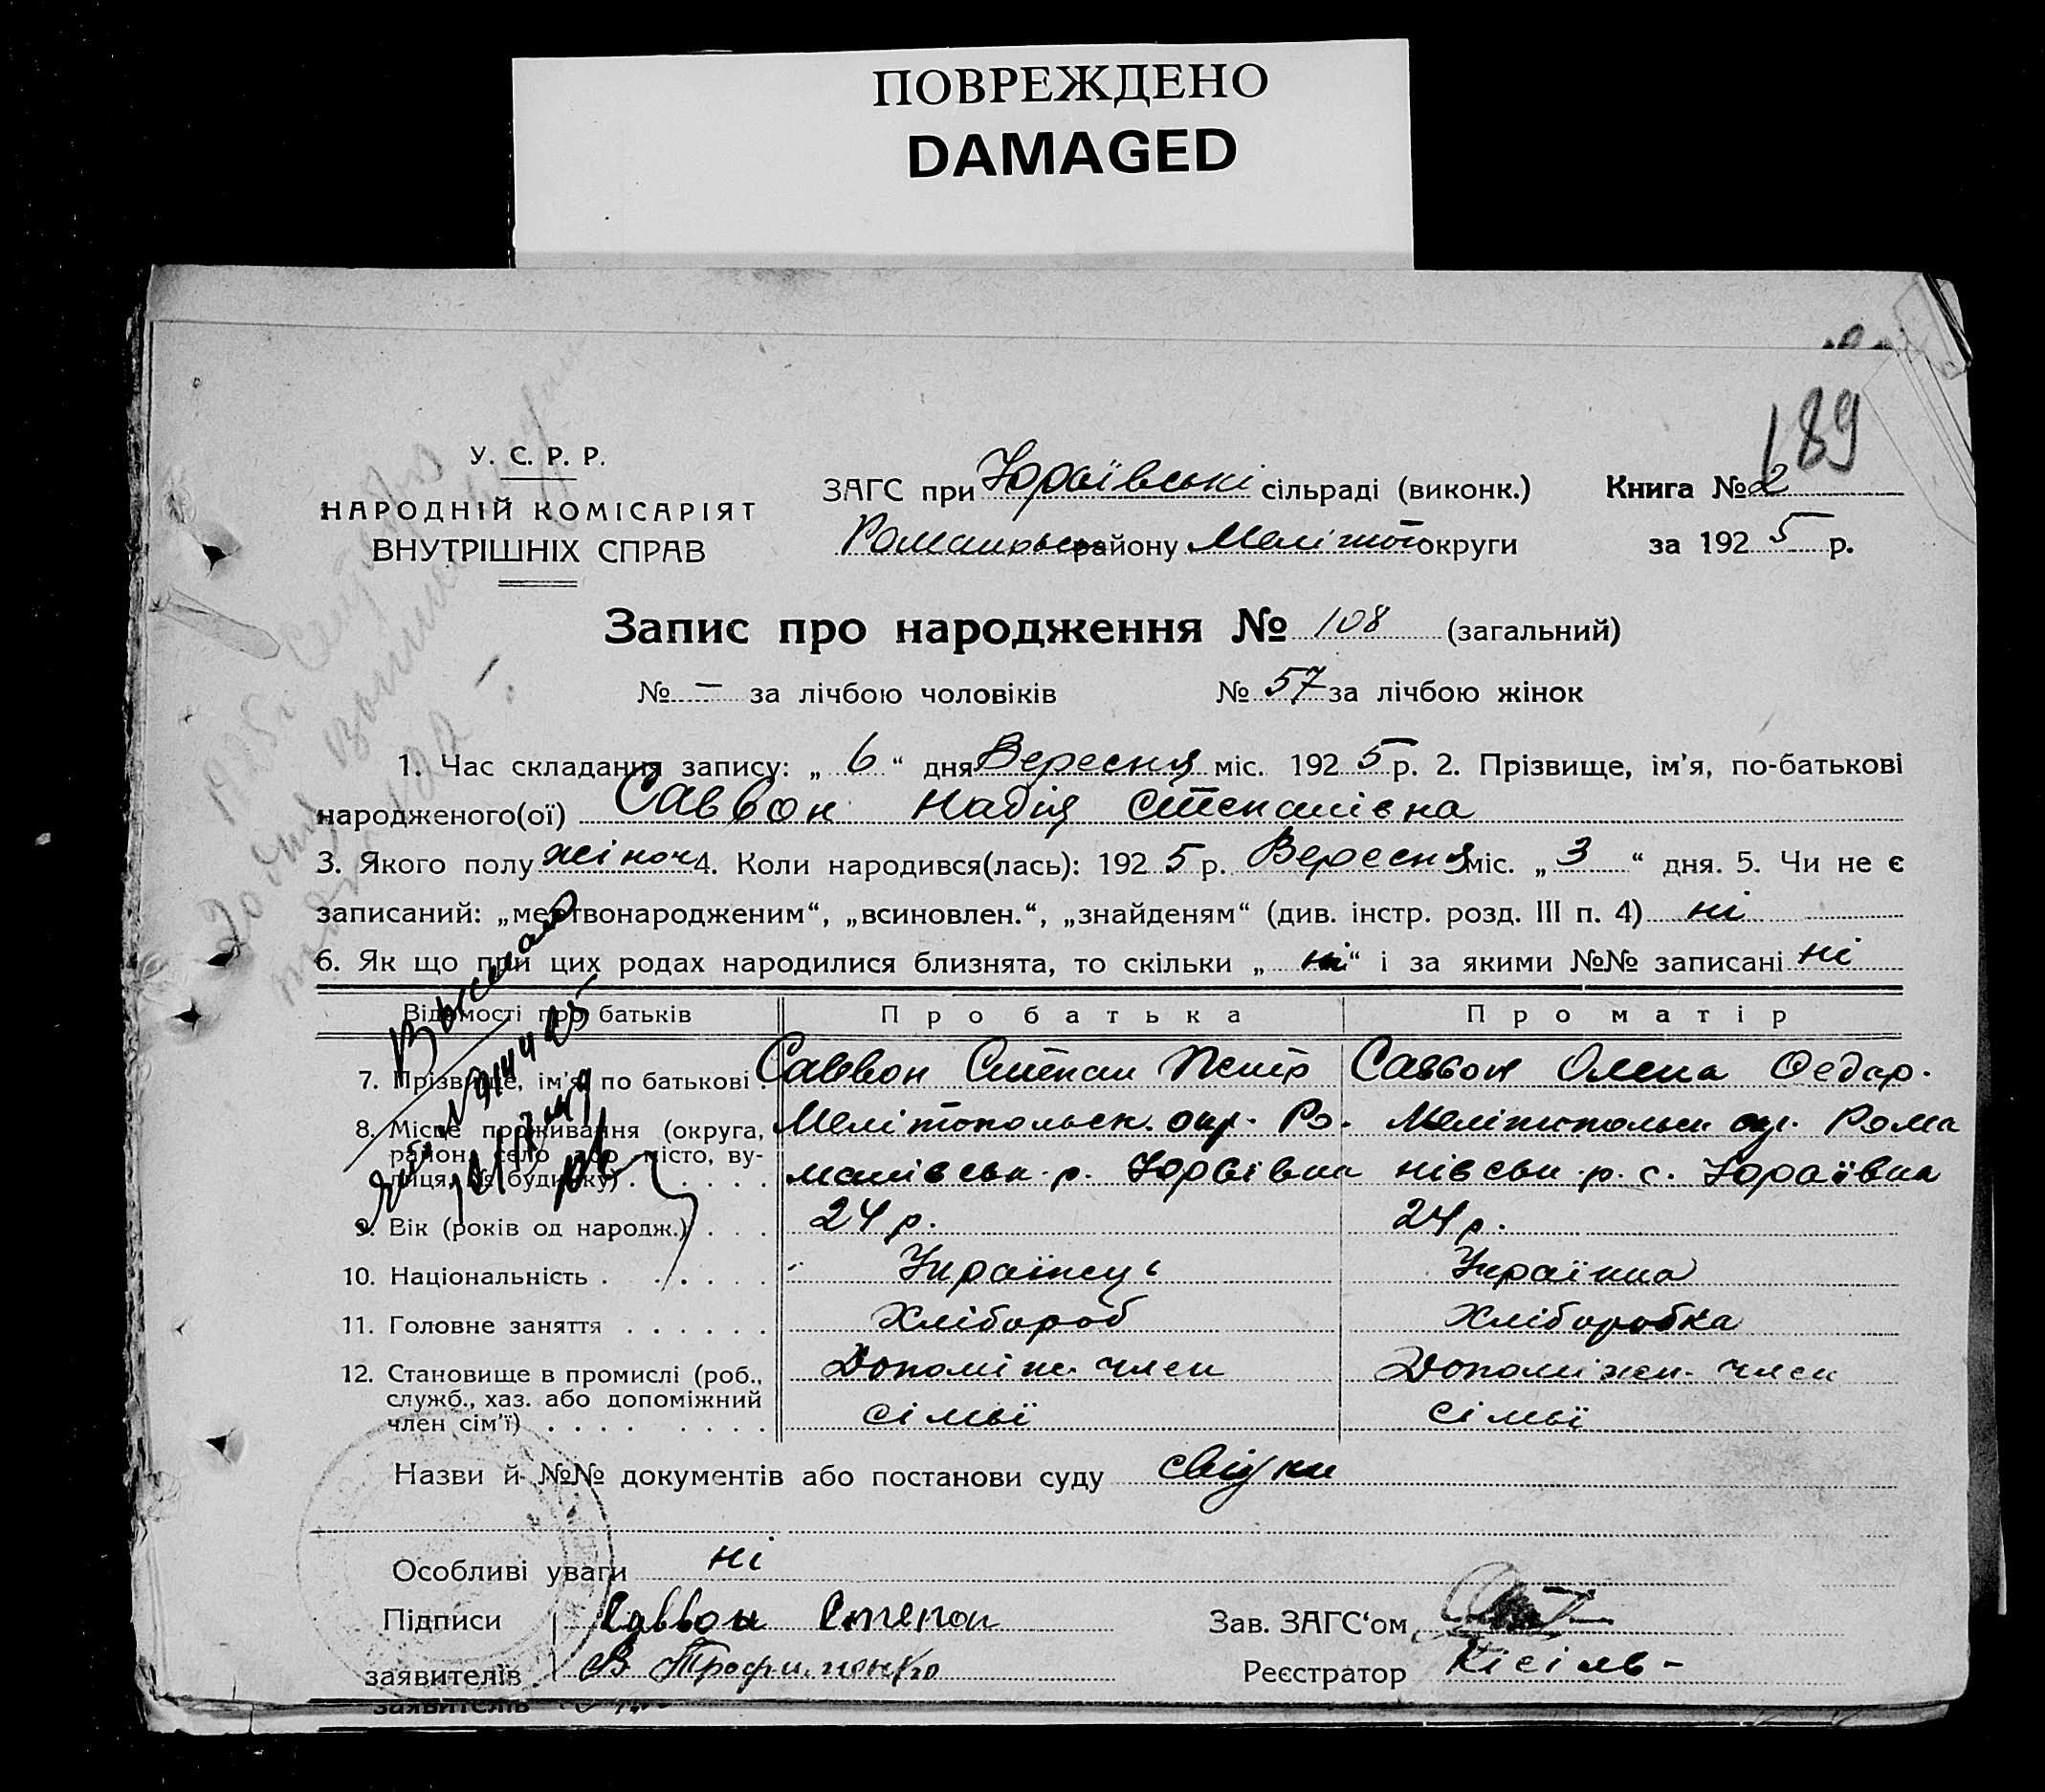 ПОВРЕЖДЕНО
DAMAGED
189
У. С. Р. Р.
НАРОДНІЙ КОМІСАРІЯТ
ВНУТРІШНІХ СПРАВ
ЗАГС при Юраївські сільраді (виконк.)
району Мелітоп округи
Книга № 2
за 1925 р.
Запис про народження № 108 (загальний)
№ — за лічбою чоловіків № 57 за лічбою жінок
1. Час складання запису: „ 6 “ дня Вересня міс. 1925 р. 2. Прізвище, ім’я, по-батькові
народженого(ої) Саввон Надія Степанівна
3. Якого полу жіноч 4. Коли народився(лась): 1925 р. Вересня міс. „ 3 “ дня. 5. Чи не є
записаний: „мертвонародженим“, „всиновлен.“, „знайденям“ (див. інстр. розд. III п. 4) ні
6. Як що при цих родах народилися близнята, то скільки „ ні “ і за якими №№ записані ні
Відомості про батьків Про батька Про матір
7. Прізвище, ім’я, по батькові . Саввон Степан Петр Саввон Олена Федор.
8. Місце проживання (округа, Мелітопольск. окр. Ро- Мелітопольск окр. Рома
район, село або місто, ву-
лиця, № будинку) . . . . . . манівськ. р. Юраївка нівськ. р. с. Юраївка
9. Вік (років од народж.) . . . 24 р. 24 р.
10. Національність . . . . . . Українець Українка
11. Головне заняття . . . . . . Хлібороб Хліборобка
12. Становище в промислі (роб., Допоміж. член Допоміжн. член
служб., хаз. або допоміжний
член сім’ї) . . . . . . . . сімьї сімьї
Назви й №№ документів або постанови суду свідки
Особливі уваги ні
Підписи Саввон Степон
заявителів В Трофименко
Зав. ЗАГС‘ом
Реєстратор Кісіль-
заявителів